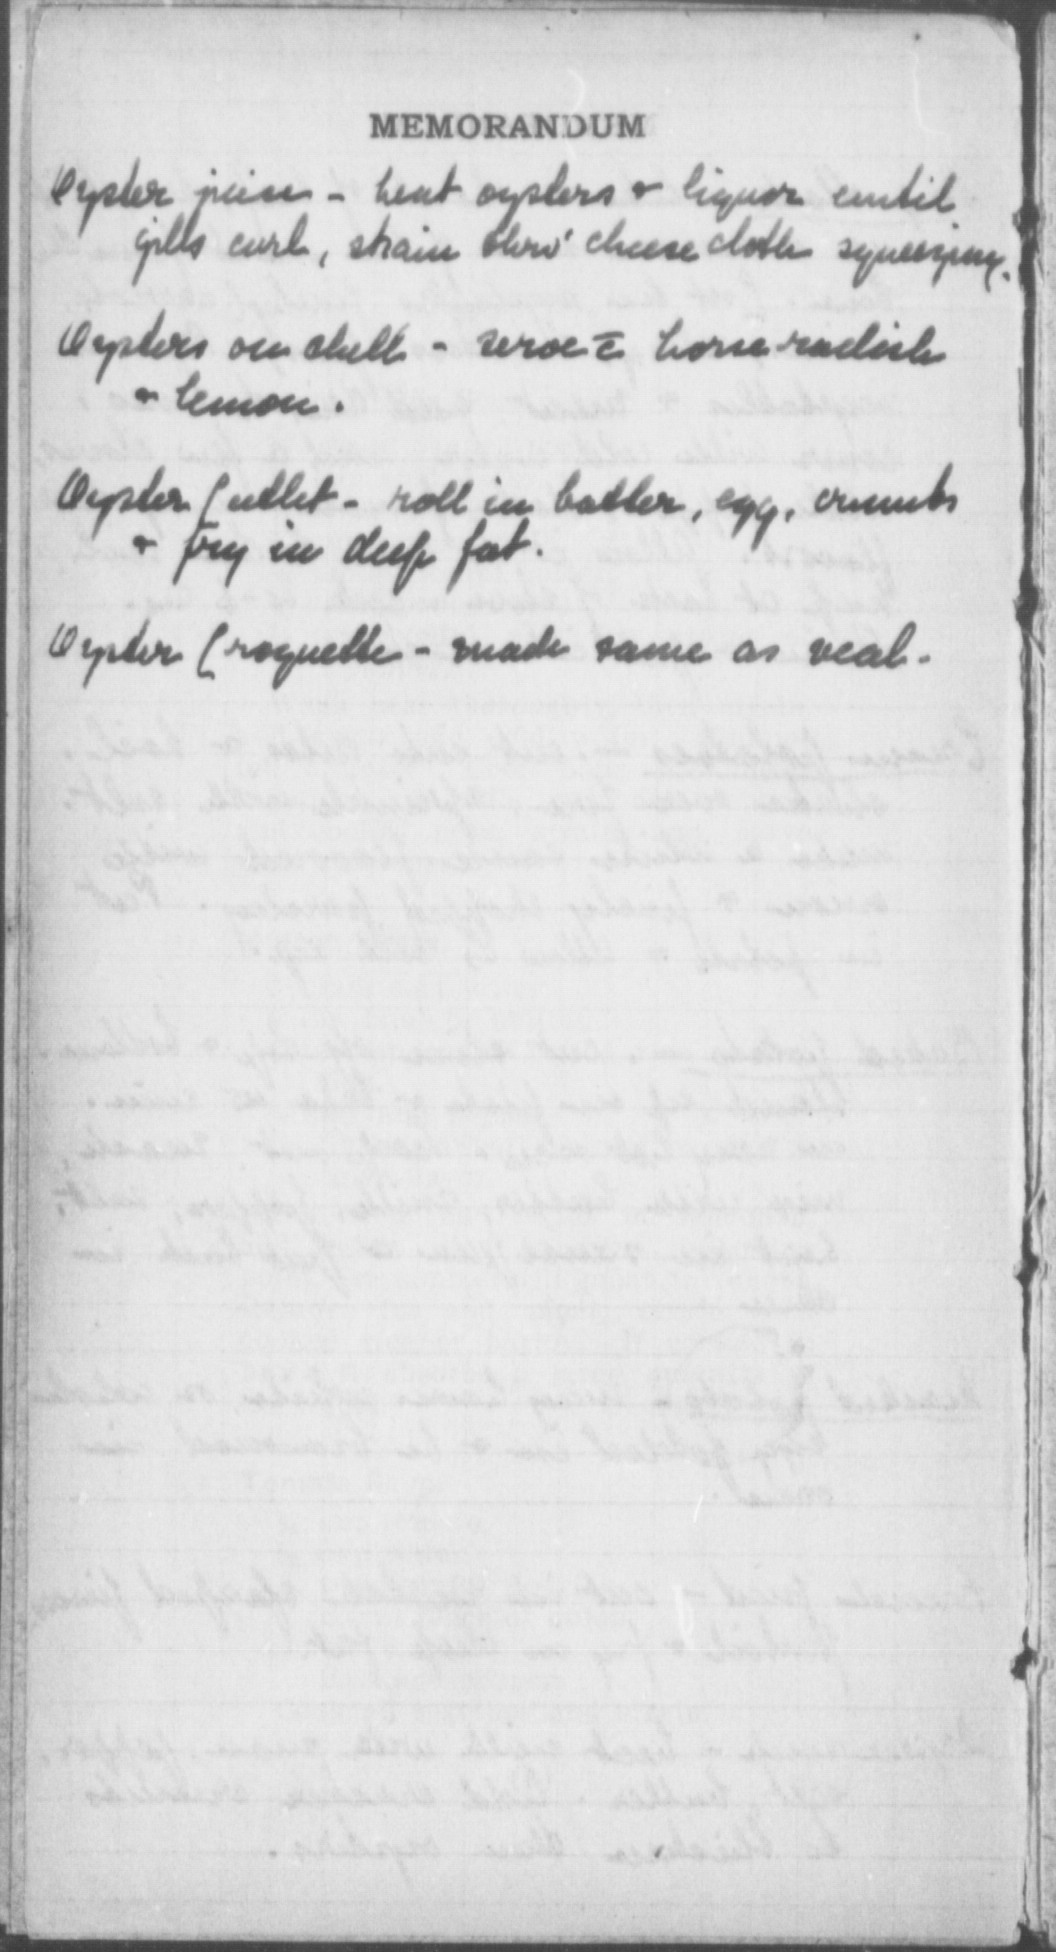 MEMORANDUM
Oyster juice - heat oysters & liquor until
gills curl, strain thro' cheese cloth squeezing.
Oysters on shell - serve c̄ horse-radish
& lemon.
Oyster Cutlet - roll in batter, egg, crumbs
& fry in deep fat.
Oyster Croquette - made same as veal.